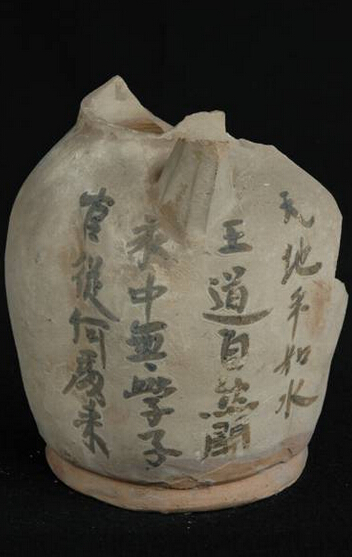 天地平如水
王道自然開
家中無學子
官從何處来